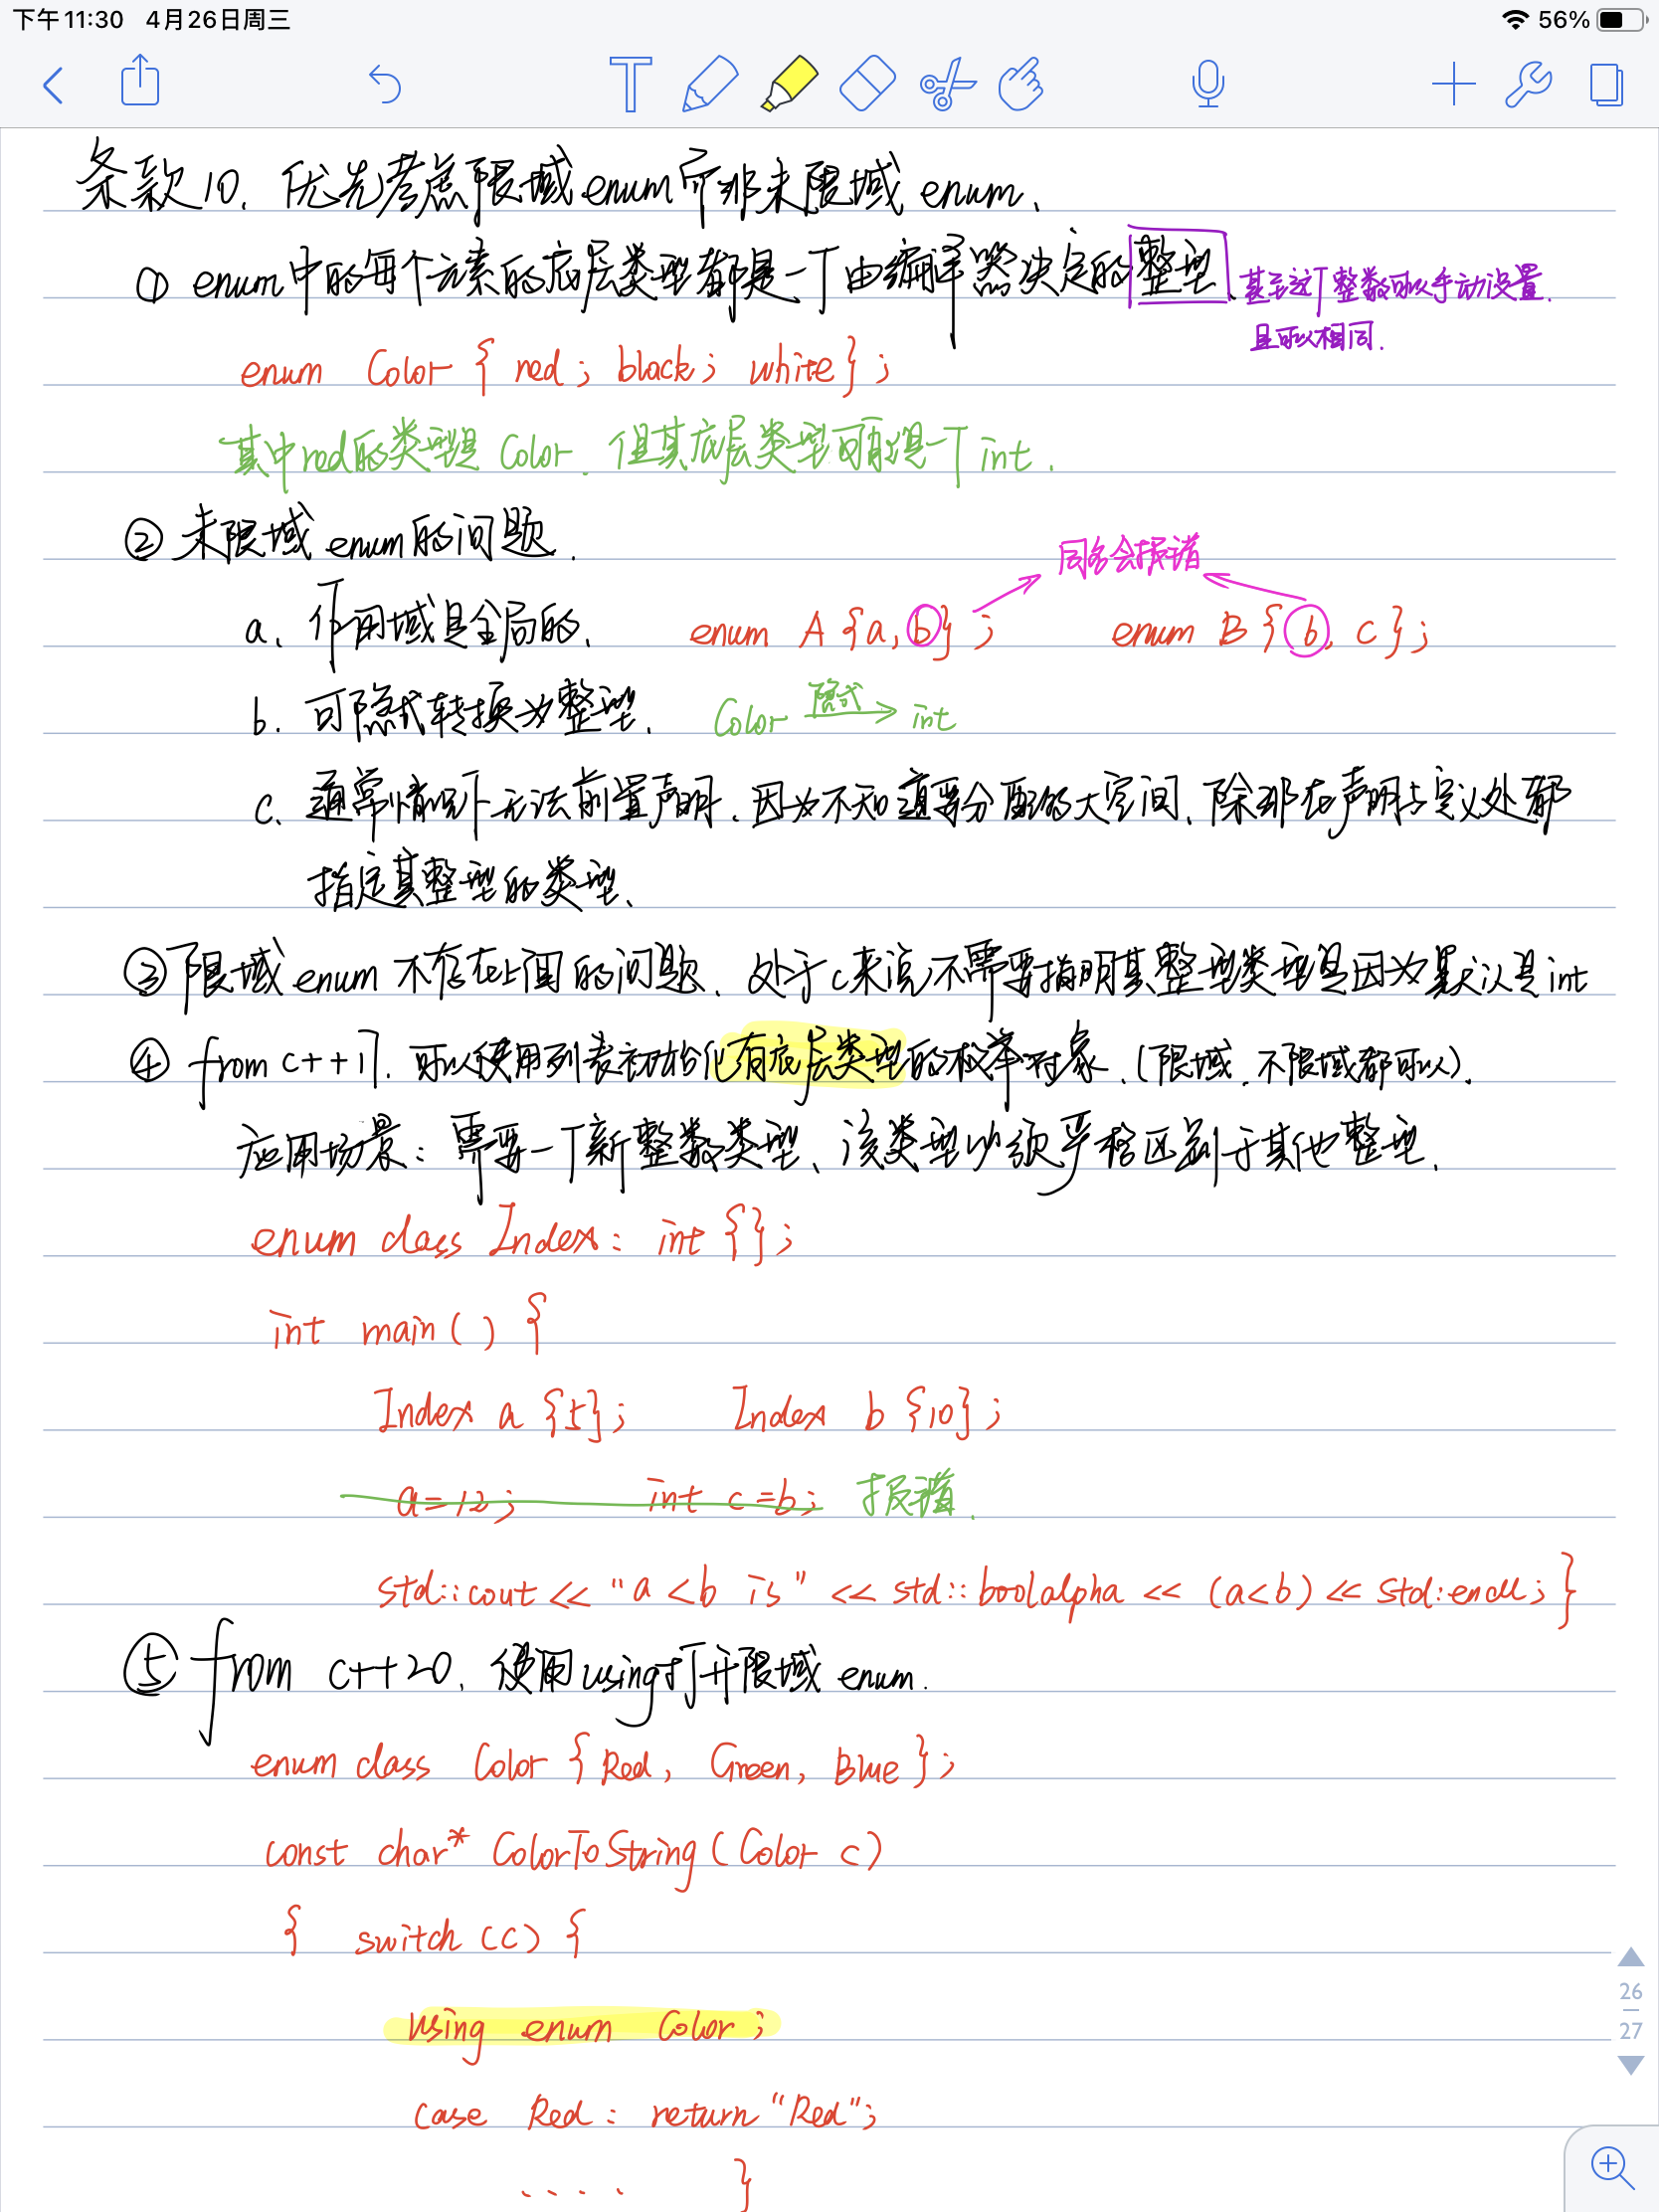 下午11:30 4月26日周三
56%
条款10. 优先考虑限域enum而非未限域 enum.
① enum中的每个元素的底层类型都是一个由编译器决定的整型.
甚至这个整数可以手动设置.
且可以相同.
enum Color { red ; black ; white } ;
其中red的类型是 Color. 但其底层类型可能是一个 int .
② 未限域 enum 的问题.
同名会报错
a. 作用域是全局的. enum A {a, b} ; enum B { b, c } ;
b. 可隐式转换为整型. Color 隐式 int
c. 通常情况下无法前置声明. 因为不知道要分配的大空间. 除非在声明与定义处都
指定其整型的类型.
③ 限域 enum 不存在上面的问题. 处于c来说,不需要指明其整型类型是因为默认是int
④ from c++17. 可以使用列表初始化有底层类型的枚举对象. (限域. 不限域都可以).
应用场景: 需要一个新整数类型. 该类型必须严格区别于其他整型.
enum class Index: int {};
int main ( ) {
Index a {5}; Index b {10} ;
a=12 ; int c =b; 报错.
std::cout << "a <b is" << std::boolalpha << (a<b) << std:endl; }
⑤ from c++20. 使用using打开限域 enum.
enum class Color { Red, Green, Blue } ;
const char* ColorToString ( Color c )
{ switch (c) {
using enum Color ;
case Red : return "Red" ;
. . . . }
26
27